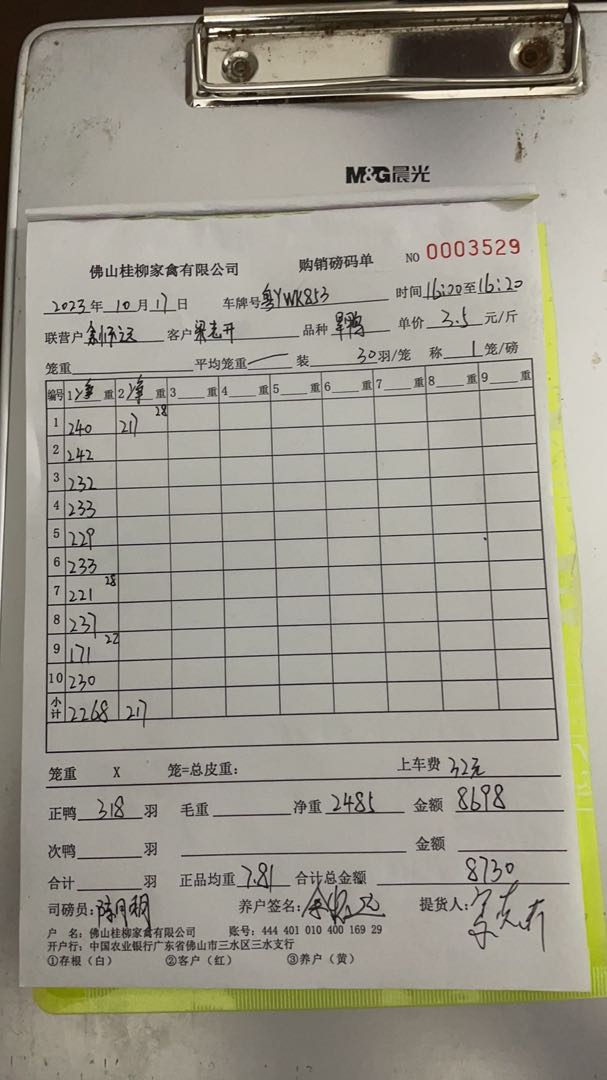 M&G晨光
佛山桂柳家禽有限公司 购销磅码单 NO 0003529
2023年 10月 17日 车牌号 粤YWK853 时间 16:20至16:20
联营户 客户 梁志开 品种 单价 3.5 元/斤
笼重 平均笼重 装 30 羽/笼 称 1 笼/磅
编号 1 净 重 2 净 重 3 重 4 重 5 重 6 重 7 重 8 重 9 重
1 240 217 28
2 242
3 232
4 233
5 229
6 233
7 221 28
8 237
9 171 22
10 230
小计 2268 217
笼重 X 笼=总皮重: 上车费 32元
正鸭 318 羽 毛重 净重 2485 金额 8698
次鸭 羽 金额
合计 羽 正品均重 7.81 合计总金额 8730
司磅员: 陈月明 养户签名: 提货人:
户 名: 佛山桂柳家禽有限公司 账号: 444 401 010 400 169 29
开户行: 中国农业银行广东省佛山市三水区三水支行
①存根（白） ②客户（红） ③养户（黄）